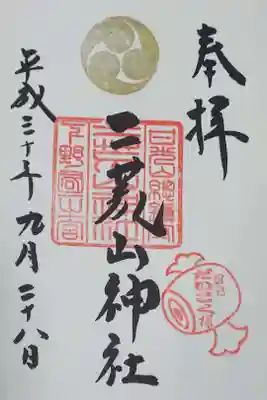 奉拝
二荒山神社
平成三十年九月二十八日
日光山総鎮守
二荒山神社
下野国一之宮